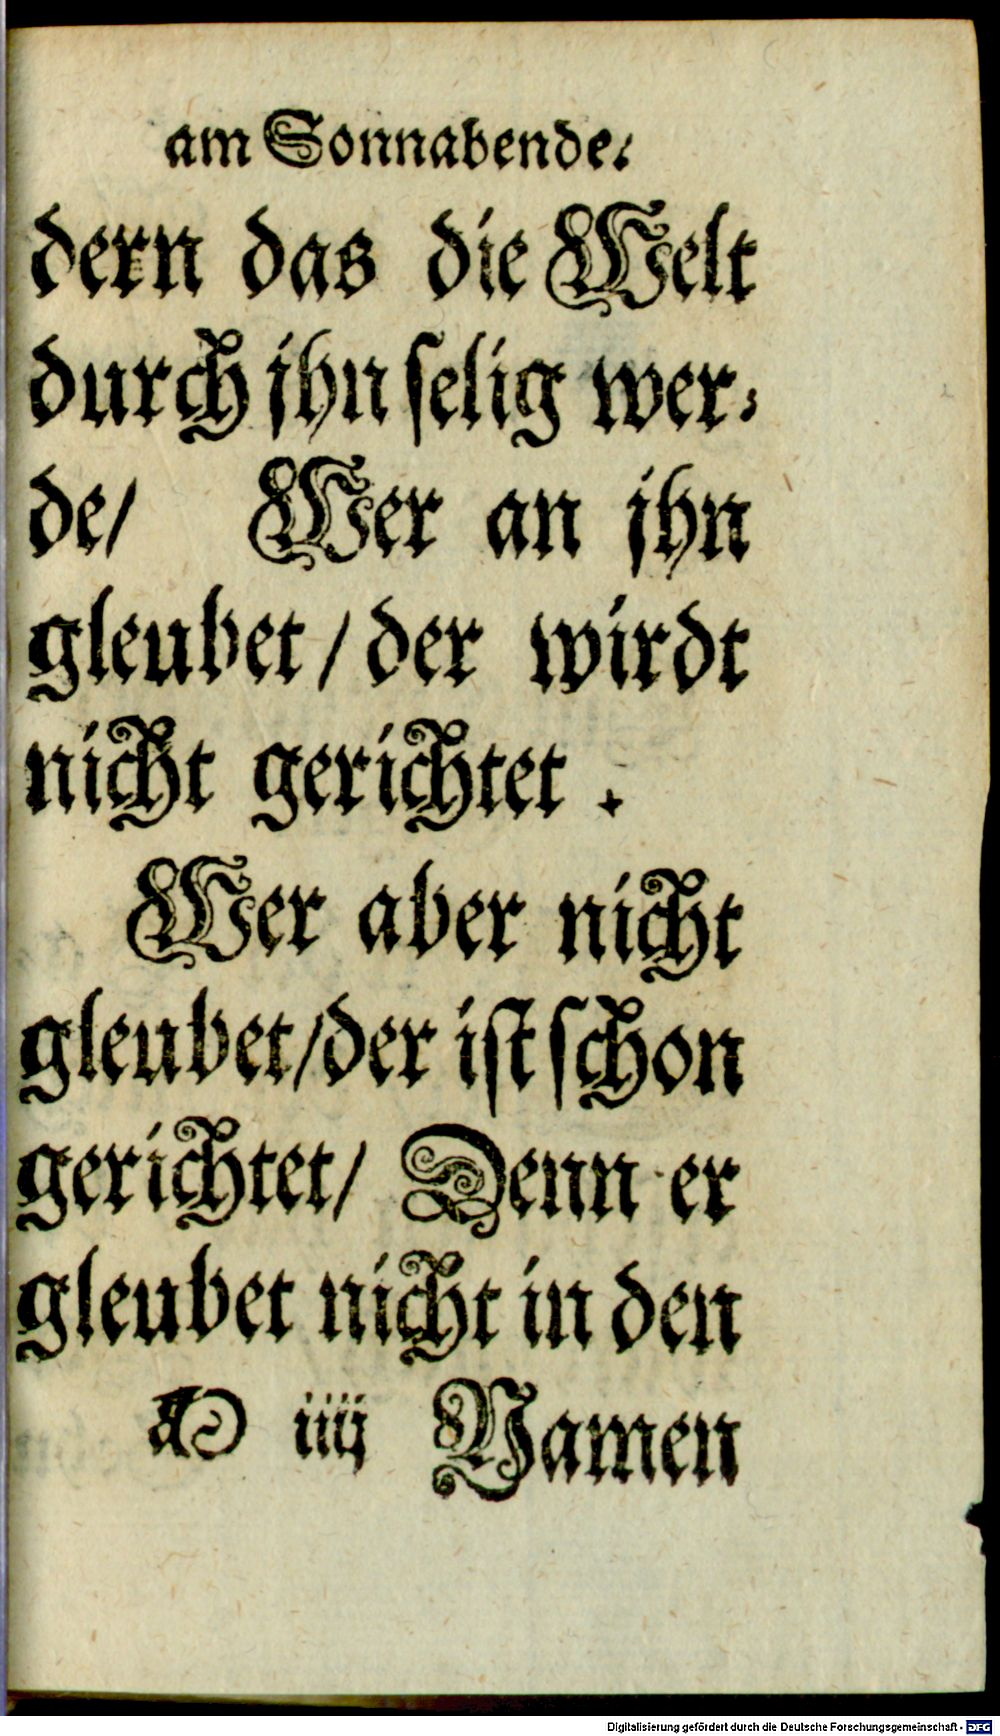 am Sonnabende.
dern das die Welt
durch jhn selig wer-
de/ Wer an jhn
gleubet/ der wirdt
nicht gerichtet.
Wer aber nicht
gleubet/ der ist schon
gerichtet/ Denn er
gleubet nicht in den
iiij Namen
Digitalisierung gefördert durch die Deutsche Forschungsgemeinschaft - DFG